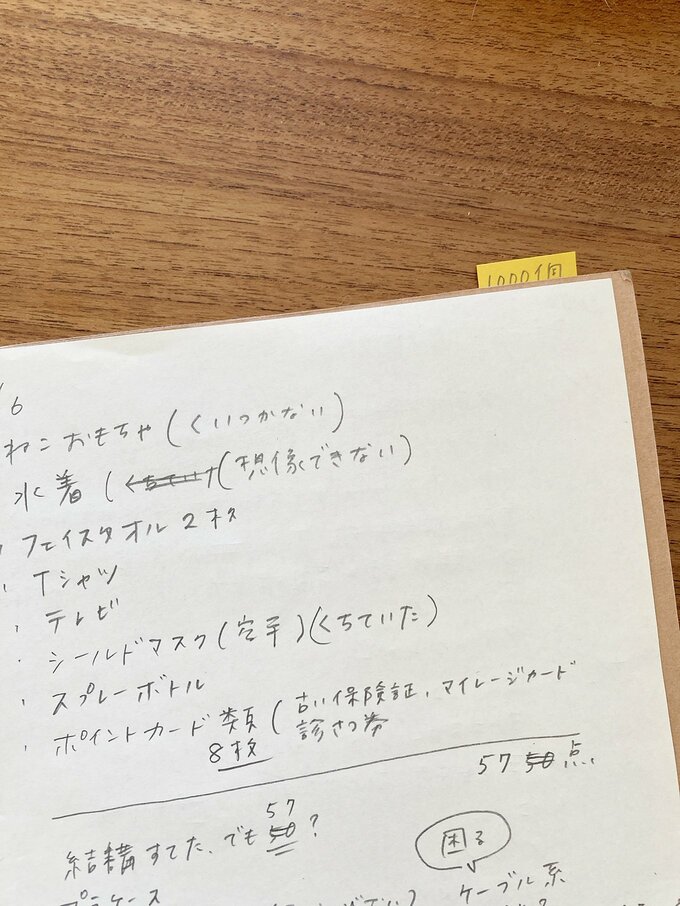 1000個
/6
ねこおもちゃ(くいつかない)
水着(くちてい(想像できない)
フェイスタオル2枚
・Tシャツ
・テレビ
・シールドマスク( )(くちていた)
・スプレーボトル
・ポイントカード類(古い保険証、マイレージカード
診さつ券
8枚
57 50点
57
結構すてた、でも50?
困る
プラケース
ケーブル系